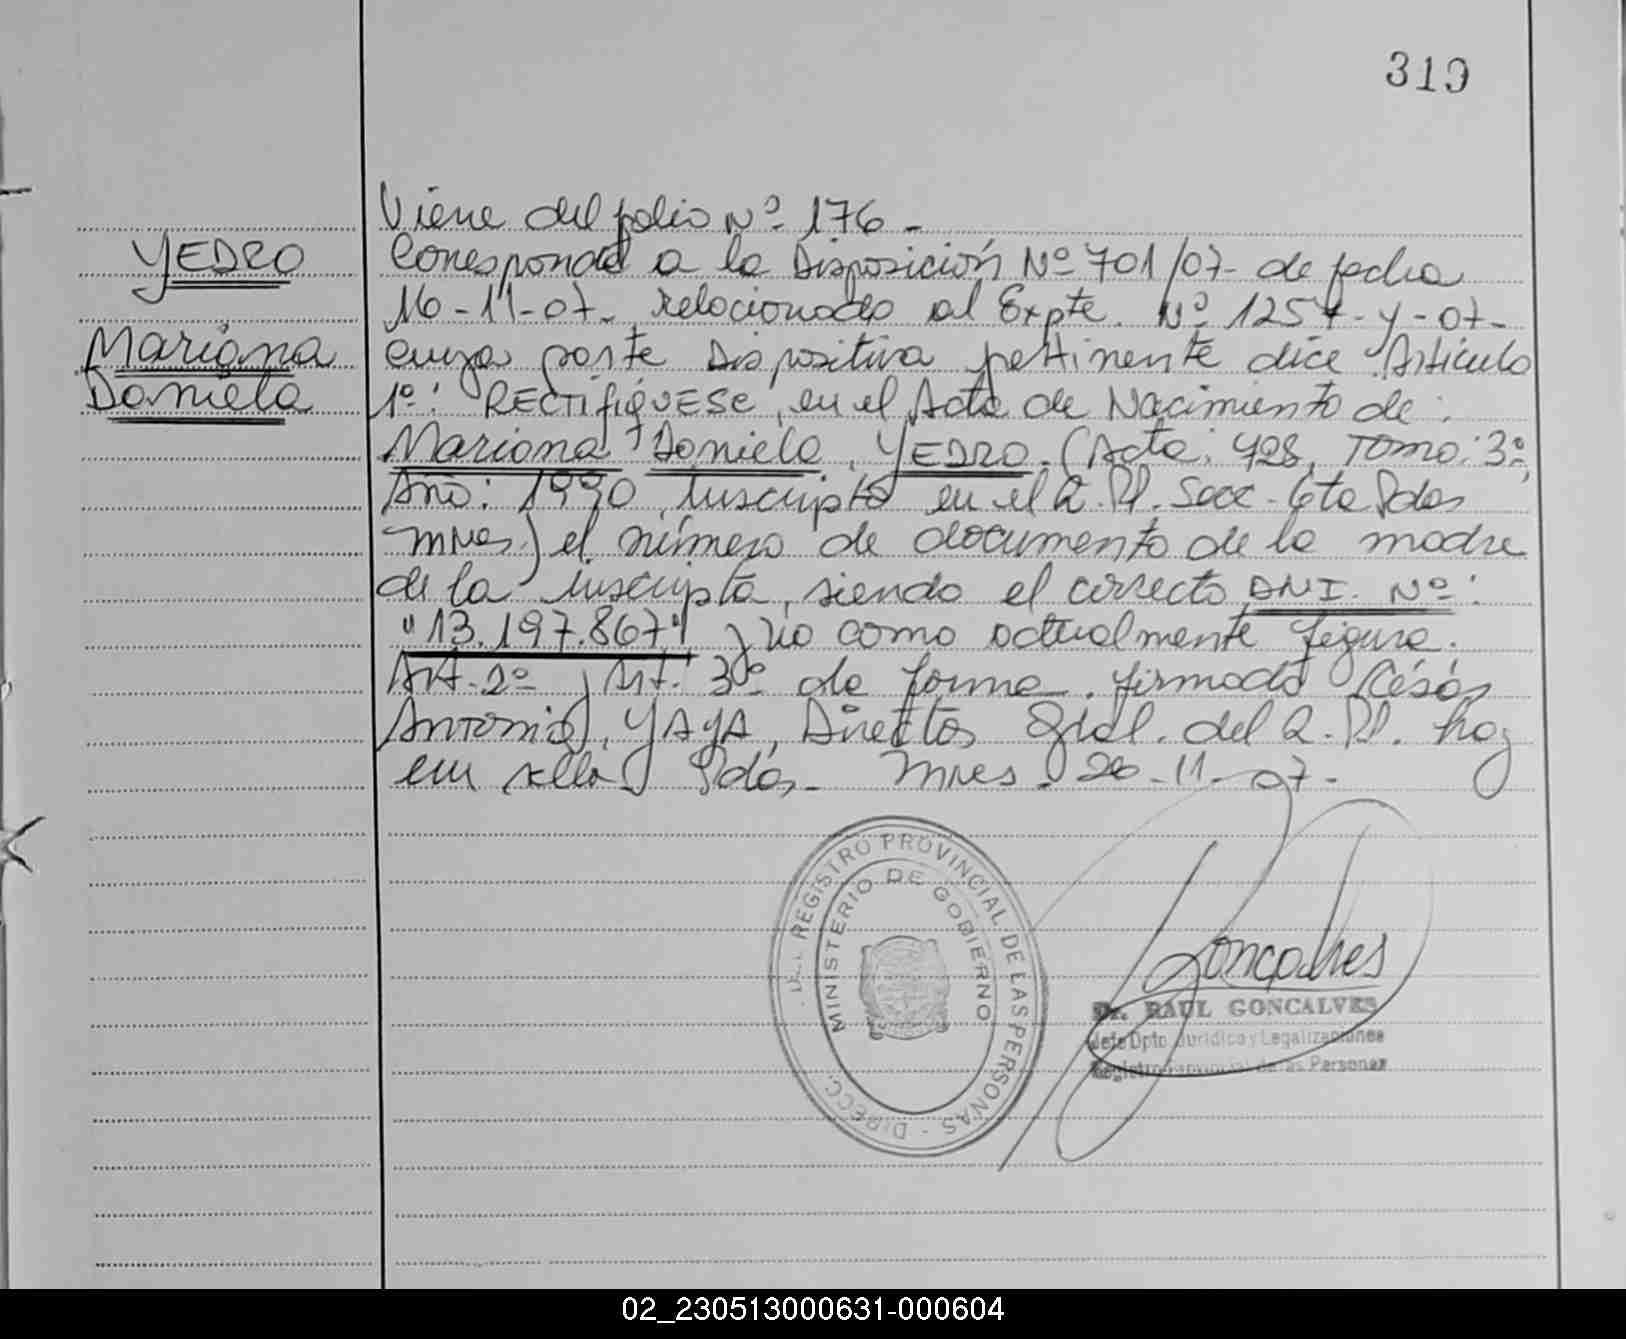 319
Viene del folio Nº 176 -
YEDRO
Corresponde a la Disposición Nº 701/07- de fecha
16-11-07- relacionado al Expte. Nº 1257-Y-07-
Mariana
cuya parte Dispositiva pertinente dice Artículo
Daniela
1º: RECTIFIQUESE, en el Acta de Nacimiento de:
Mariana Daniela, YEDRO. (Acta: 428, Tomo: 3º,
Año: 1990, Inscripta en el R.P. Secc. 6ta Pdas
Mnes.) el número de documento de la madre
de la inscripta, siendo el correcto DNI. Nº:
"13.197.867" y no como actualmente figura.
Art. 2º y Art. 3º de forma. firmado César
Antonio, YAYA, Director Gral. del R.P. hay
un sello Pdas. Mnes. 26-11-07-
DIRECC. DEL REGISTRO PROVINCIAL DE LAS PERSONAS -
MINISTERIO DE GOBIERNO
Goncalves
Dr. RAUL GONCALVES
Jefe Dpto Jurídico y Legalizaciones
Registro Provincial de las Personas
02_230513000631-000604